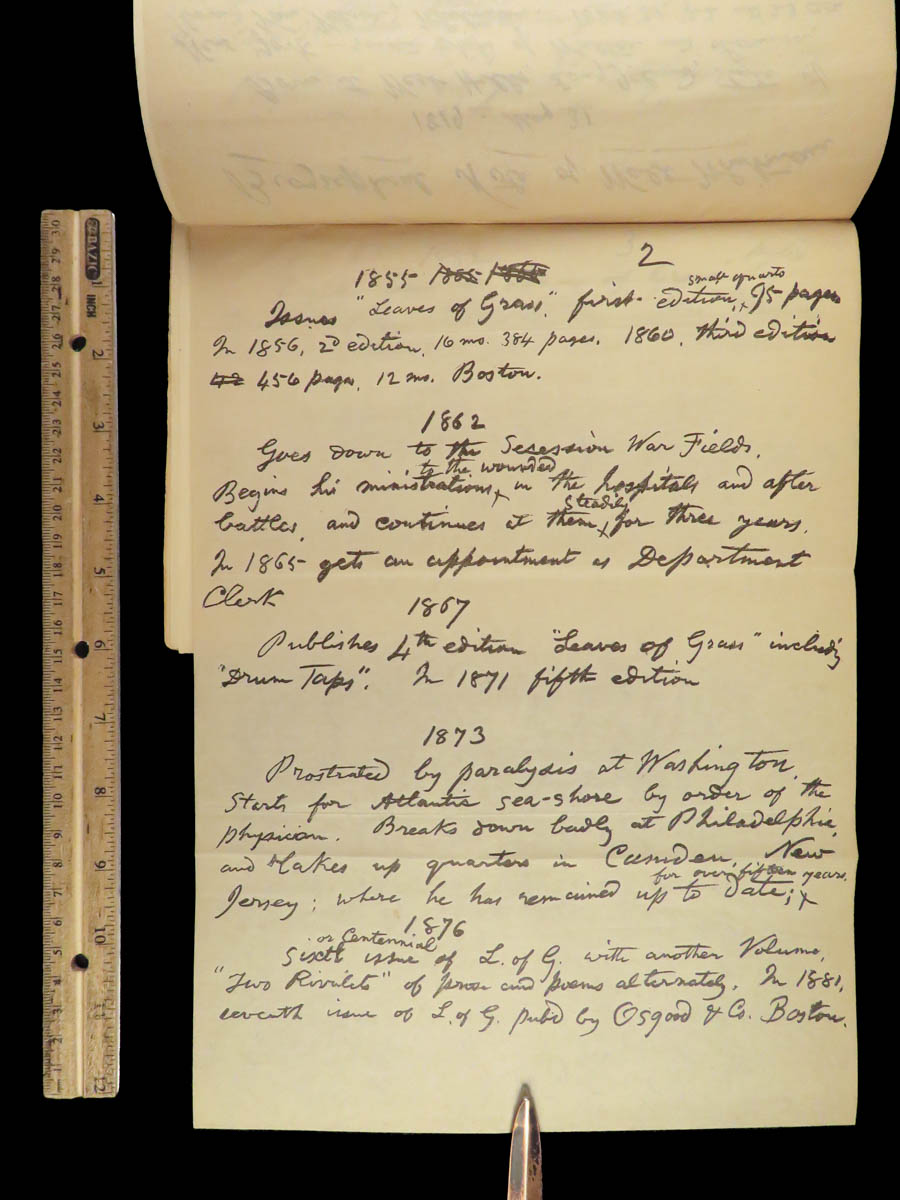 2
1855 1865 1866
small quarto
Issues "Leaves of Grass", first edition, 95 pages
In 1856, 2d edition, 16 mo. 384 pages. 1860, third edition
42 456 pages, 12 mo. Boston.
1862
Goes down to the Secession War Fields.
to the wounded
Begins his ministrations, in the hospitals and after
steadily
battles, and continues at them, for three years.
In 1865 gets an appointment as Department
Clerk
1867
Publishes 4th edition "Leaves of Grass" includi'g
"Drum Taps". In 1871 fifth edition
1873
Prostrated by paralysis at Washington.
Starts for Atlantic sea-shore by order of the
physician. Breaks down badly at Philadelphia,
and takes up quarters in Camden, New
for over fifteen years.
Jersey; where he has remained up to date;
1876
or Centennial
Sixth issue of L. of G. with another Volume,
"Two Rivulets" of prose and poems alternately. In 1881,
seventh issue of L. of G. pub'd by Osgood & Co. Boston.
BAZIC
INCH
1
2
3
4
5
6
7
8
9
10
11
12
30
29
28
27
26
25
24
23
22
21
20
19
18
17
16
15
14
13
12
11
10
9
8
7
6
5
4
3
2
1